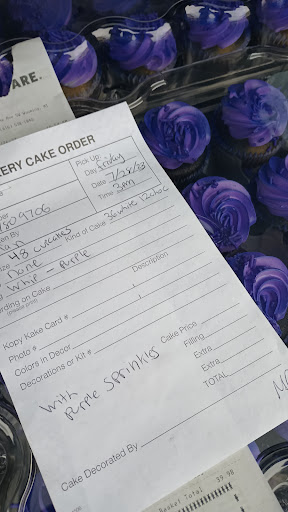 ARE.
ERY CAKE ORDER
Pick Up:
Day Friday
Date 7/28/23
Time 2pm
809706
en By
48 cupcakes Kind of Cake 36 white 12 choc
none
whip - purple
Description
(Please print)
Kopy Kake Card #
Photo #
Colors in Decor
Decorations or Kit #
Cake Price
Filling
Extra
Extra
TOTAL
with
purple sprinkls
Cake Decorated By
Basket Total $9.98